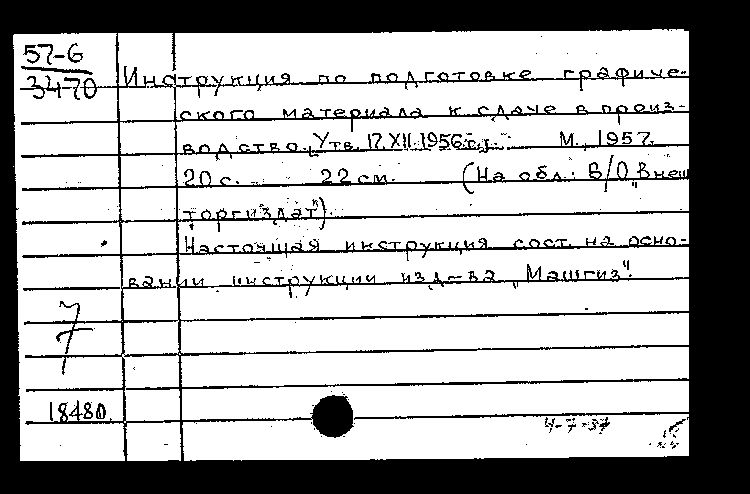 57-6
3470
Инструкция по подготовке графиче-
ского материала к сдаче в произ-
водство. [Утв. 17.XII.1956 г.]. М., 1957.
20 с. 22 см. (На обл.: В/О „Внеш
торгиздат").
Настоящая инструкция сост. на осно-
вании инструкции изд-ва „Машгиз".
7
18480
4-7-37